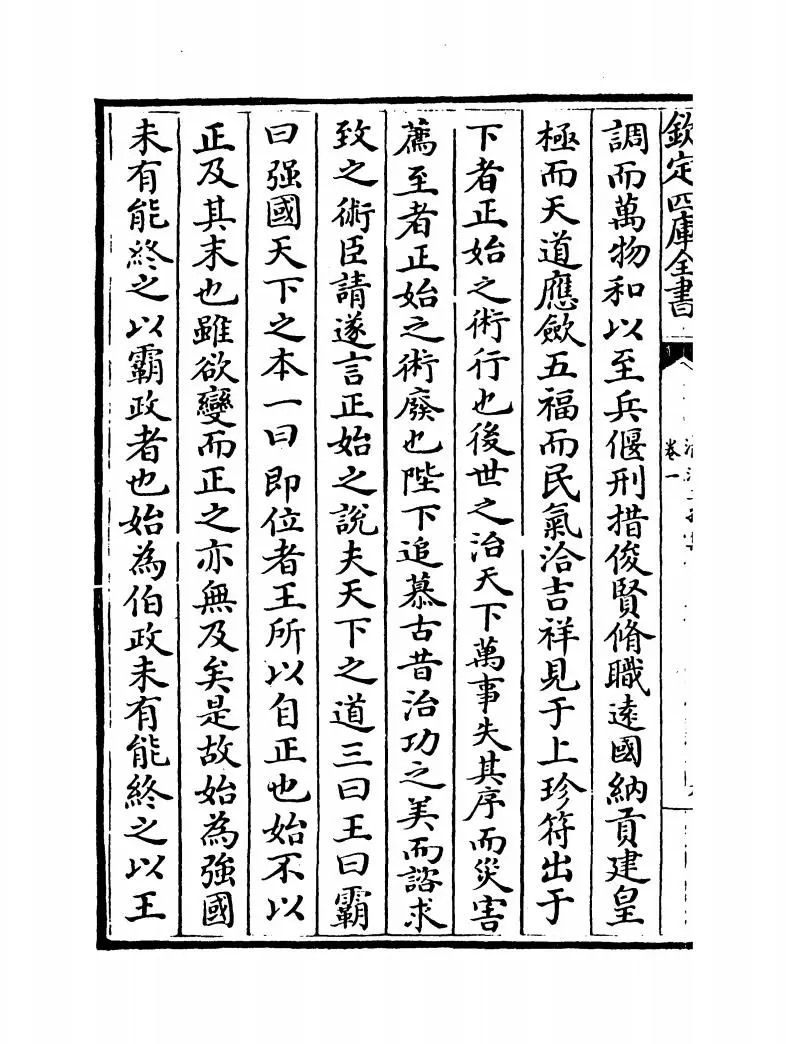 欽定四庫全書
卷一
調而萬物和以至兵偃刑措俊賢脩職遠國納貢建皇
極而天道應歛五福而民氣洽吉祥見于上珍符出于
下者正始之術行也後世之治天下萬事失其序而災害
薦至者正始之術廢也陛下追慕古昔治功之美而諮求
致之術臣請遂言正始之說夫天下之道三曰王曰霸
曰强國天下之本一曰即位者王所以自正也始不以
正及其末也雖欲變而正之亦無及矣是故始為強國
未有能終之以霸政者也始為伯政未有能終之以王